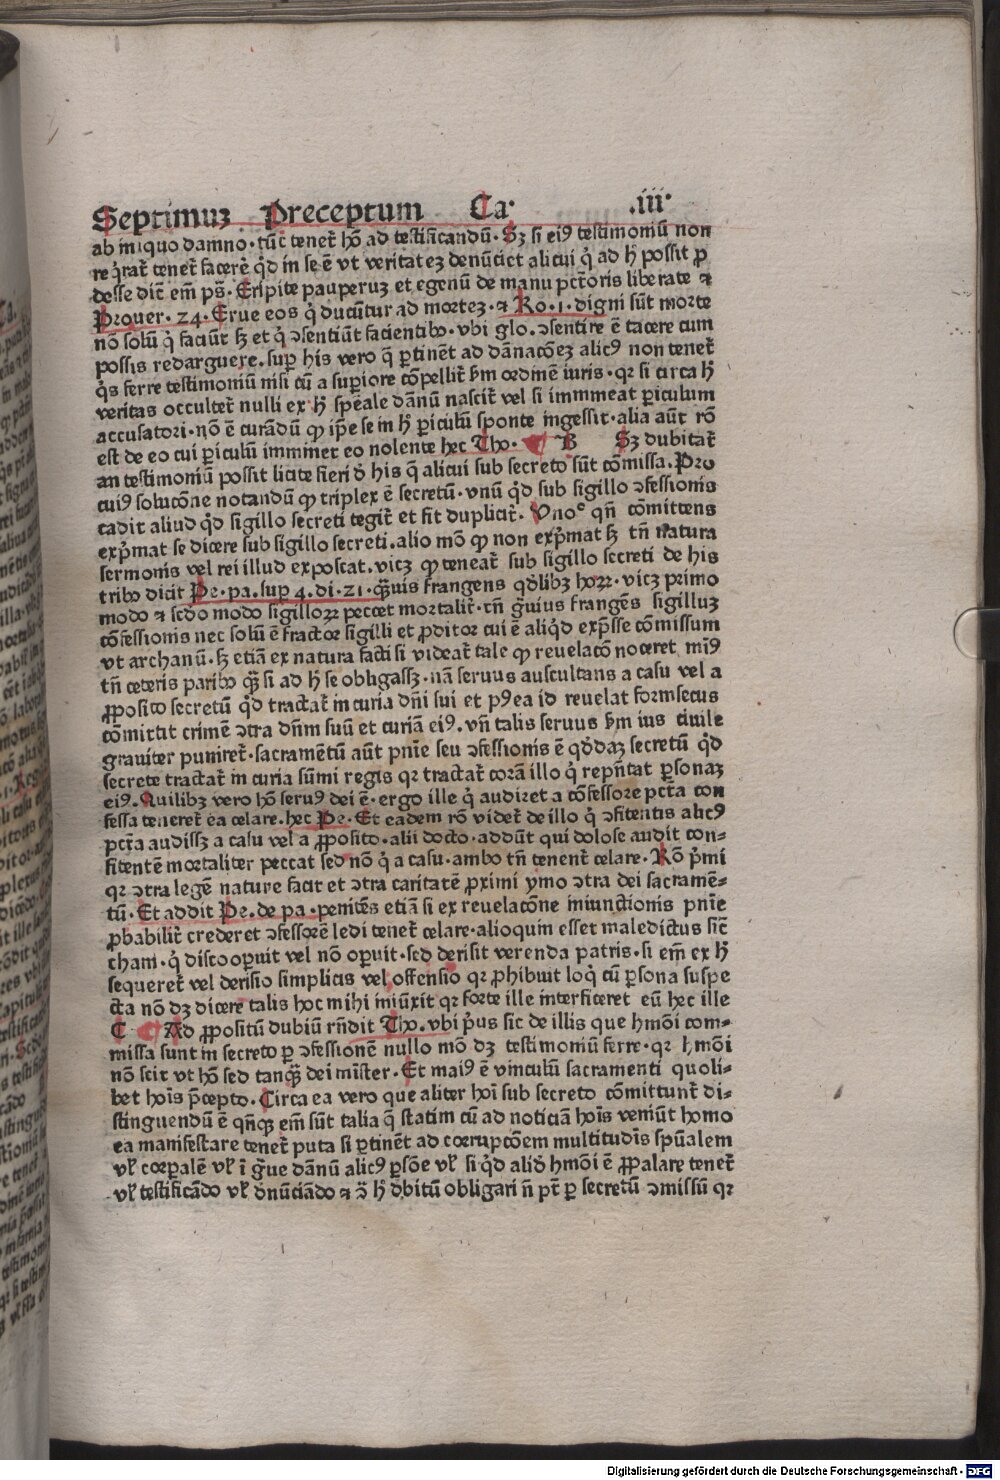 Septimuz Preceptum Ca· .iii·
ab iniquo damno · tūc tenet̄ hō ad testificandū · Sz si eiꝰ testimoniū non
req̇rat̄ tenet̄ facere q̇d in se ē vt veritatez denūciet alicui q̇ ad hͦ possit ꝓ
desse dict̄ em̄ ps̄ · Eripite pauperuz et egenū de manu pctōris liberate ⁊
Prouer · 24 · Erue eos q̇ ducūtur ad mortez · ⁊ Ro · 1 · digni sūt morte
nō solū q̇ faciūt sꝫ et q̇ ↄsentiūt facientibꝰ · vbi glo · ↄsentire ē tacere cum
possis redarguere · suꝑ his vero q̄ ꝑtinēt ad dānacōez alicꝰ non tenet̄
q̇s ferre testimoniū nisi cū a superiore cōpellit̄ ẜm ordinē iuris · qꝛ si circa hͦ
veritas occultet̄ nulli ex hͦ spēale dānū nascit̄ vel si immineat periculum
accusatori · nō ē curādū ꝙ ip̄e se in hͦ ꝑiculū sponte ingessit · alia aūt rō
est de eo cui ꝑiculū imminet eo nolente hec Tho · B Sz dubitat̄
an testimoniū possit licite fieri d̄ his q̄ alicui sub secreto sūt cōmissa · Pro
cuiꝰ solucōne notandū ꝙ triplex ē secretū · vnū q̇d sub sigillo ↄfessionis
cadit aliud q̇d sigillo secreti tegit̄ et fit duplicit̄ · Unoᵉ qn̄ cōmittens
exp̄mat se dicere sub sigillo secreti · alio mō ꝙ non exp̄mat sꝫ tn̄ natura
sermonis vel rei illud exposcat · vicz ꝙ teneat̄ sub sigillo secreti de his
tribꝰ dicit Pe · pa · suꝑ 4 · di · 21 · q̄uis frangens q̇dlibz hoꝝ · vicz primo
modo ⁊ scdo modo sigilloꝝ peccet mortalit̄ · tn̄ g̊uius frangēs sigilluz
cōfessionis nec solū ē fractor sigilli et ꝓditor cui ē aliq̇d exp̄sse cōmissum
vt archanū · sꝫ etiā ex natura facti si videat̄ tale ꝙ reuelatō noceret miꝰ
tn̄ ceteris paribꝰ q̄ si ad hͦ se obligassꝫ · nā seruus auscultans a casu vel a
ꝓposito secretū q̇d tractat̄ in curia dn̄i sui et pꝰea id reuelat forinsecus
cōmittit crimē ↄtra dn̄m suū et curiā eiꝰ · vn̄ talis seruus ẜm ius ciuile
grauiter puniret̄ · sacramētū aūt pnīe seu ↄfessionis ē q̇ddaz secretū q̇d
secrete tractat̄ in curia sūmi regis qꝛ tractat̄ corā illo q̇ repn̄tat ꝑsonaz
eiꝰ · Quilibz vero hō seruꝰ dei ē · ergo ille q̇ audiret a cōfessore pcta con
fessa teneret̄ ea celare · hec Pe · Et eadem rō videt̄ de illo q̇ ↄfitentis alicꝰ
pctā audissꝫ a casu vel a ꝓposito · alii docto · addūt qui dolose audit con-
fitentē mortaliter peccat sed nō q̇ a casu · ambo tn̄ tenent̄ celare · Rō p̄mi
qꝛ ↄtra legē nature facit et ↄtra caritatē ꝓximi ymo ↄtra dei sacramē-
tū · Et addit Pe · de pa · penitēs etiā si ex reuelacōne iniunctionis pnīe
ꝓbabilit̄ crederet ↄfessorē ledi tenet̄ celare · alioquin esset maledictus sic̄
cham · q̇ discooꝑuit vel nō oꝑuit · sed derisit verenda patris · si em̄ ex hͦ
sequeret̄ vel derisio simplicis vel offensio qꝛ ꝓhibuit loq̇ cū ꝑsona suspe
cta nō dꝫ dicere talis hoc mihi iniūxit qꝛ forte ille interficeret eū hec ille
C Ad ꝓpositū dubiū rn̄dit Tho · vbi p̄us sic de illis que hmōi com-
missa sunt in secreto ꝑ ↄfessionē nullo mō dꝫ testimoniū ferre · qꝛ hmōi
nō scit vt hō sed tanq̄ dei mīster · Et maiꝰ ē vinculū sacramenti quoli-
bet hoīs p̄cepto · Circa ea vero que aliter hoī sub secreto cōmittunt̄ di-
stinguendū ē qn̄qꝫ em̄ sūt talia q̄ statim cū ad noticiā hoīs veniūt homo
ea manifestare tenet̄ puta si ꝑtinēt ad corrupcōem multitudīs spūalem
vl̄ corꝑalē vl̄ ī g̊ue dānū alicꝰ ꝑsōe vl̄ si q̇d aliđ hmōi ē ꝓpalare tenet̄
vl̄ testificādo vl̄ đnūciādo ⁊ ↄ̄ hͦ đbitū obligari n̄ pt̄ ꝑ secretū ↄmissū qꝛ
Digitalisierung gefördert durch die Deutsche Forschungsgemeinschaft - DFG